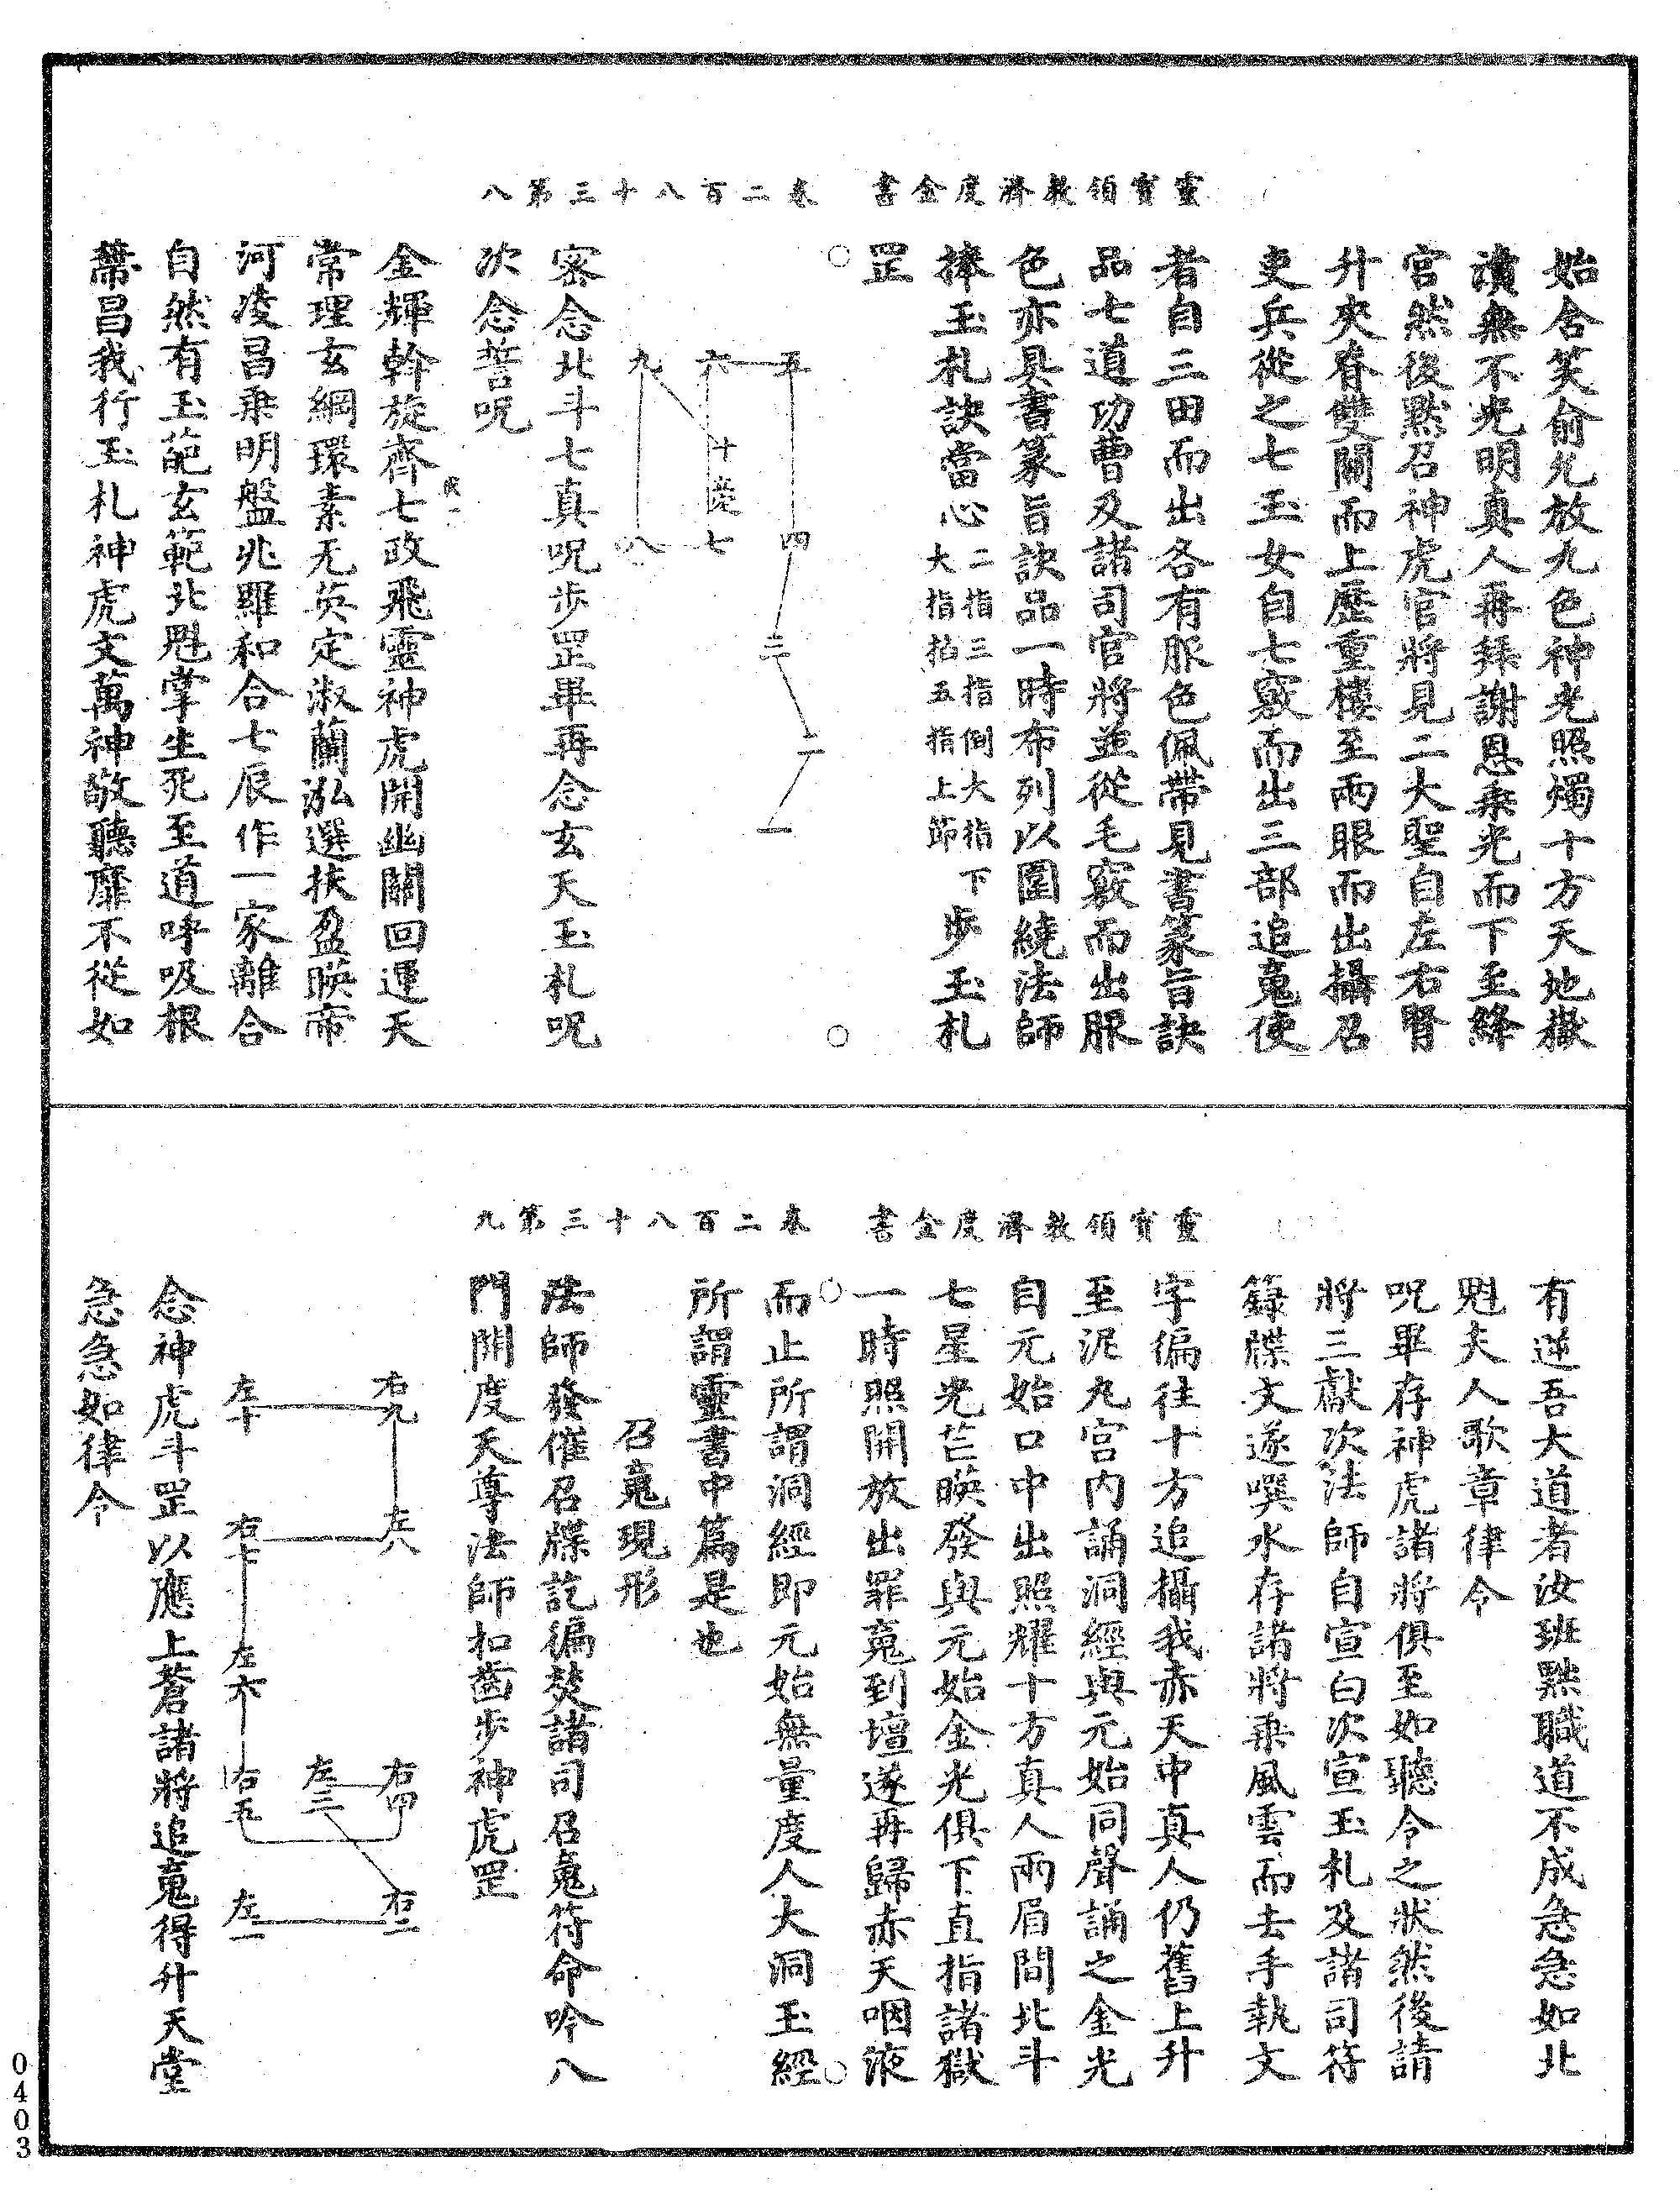 靈寶領教濟度金書　卷二百八十三第八
始含笑俞允放九色神光照燭十方天地嶽
瀆無不光明真人再拜謝恩乘光而下至絳
宮然後默召神虎官將見二大聖自左右腎
升夾脊雙關而上歷重樓至兩眼而出攝召
吏兵從之七玉女自七竅而出三部追魂使
者自三田而出各有服色佩帶見書篆旨訣
品七道功曹及諸司官將並從毛竅而出服
色亦具書篆旨訣品一時布列以圍繞法師
捧玉札訣當心二指三指倒大指下
大指掐五指上節步玉札
罡
五 六 九
十
七 四 八
三
二
一
密念北斗七真呪步罡畢再念玄天玉札呪
次念誓呪
金輝斡旋齊七政飛靈神虎開幽關回運天
常理玄綱環素无英定淑蘭泓選扶盈暎帝
河凌昌乘明盤兆羅和合七辰作一家離合
自然有玉葩玄範北魁掌生死至道呼吸根
蒂昌我行玉札神虎文萬神敬聽靡不從如
靈寶領教濟度金書　卷二百八十三第九
有逆吾大道者汝班黜職道不成急急如北
魁夫人歌章律令
呪畢存神虎諸將俱至如聽令之狀然後請
將三獻次法師自宣白次宣玉札及諸司符
籙牒文遂噀水存諸將乘風雲而去手執文
字徧往十方追攝我赤天中真人仍舊上升
至泥丸宮內誦洞經與元始同聲誦之金光
自元始口中出照耀十方真人兩眉間北斗
七星光芒暎發與元始金光俱下直指諸獄
一時照開放出罪魂到壇遂再歸赤天咽液
而止所謂洞經即元始無量度人大洞玉經
所謂靈書中篇是也
召魂現形
法師發催召牒訖徧焚諸司召魂符命吟八
門開度天尊法師扣齒步神虎罡
右九 左十
左八 右七
左六
右四 左三 右五
右二 左一
念神虎斗罡以應上蒼諸將追魂得升天堂
急急如律令
0403